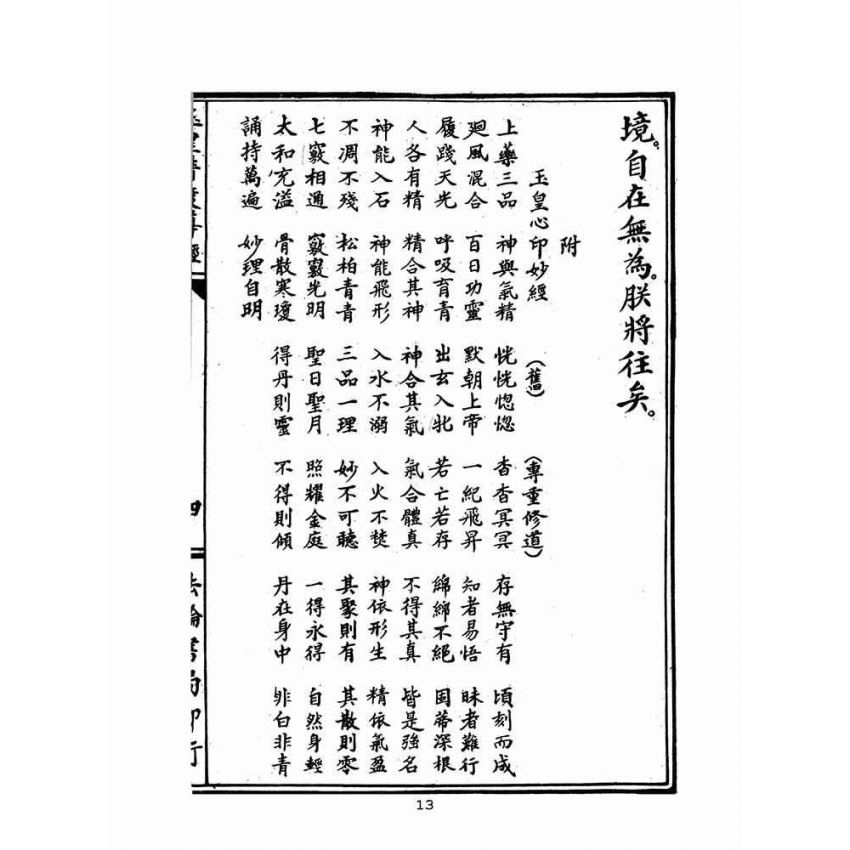 境。自在無為。朕將往矣。
附
玉皇心印妙經 (舊) (專重修道)
上藥三品 神與氣精 恍恍惚惚 杳杳冥冥 存無守有 頃刻而成
廻風混合 百日功靈 默朝上帝 一紀飛昇 知者易悟 昧者難行
履踐天先 呼吸育青 出玄入牝 若亡若存 綿綿不絕 固蒂深根
人各有精 精合其神 神合其氣 氣合體真 不得其真 皆是強名
神能入石 神能飛形 入水不溺 入火不焚 神依形生 精依氣盈
不凋不殘 松柏青青 三品一理 妙不可聽 其聚則有 其散則零
七竅相通 竅竅光明 聖日聖月 照耀金庭 一得永得 自然身輕
太和充溢 骨散寒瓊 得丹則靈 不得則傾 丹在身中 非白非青
誦持萬遍 妙理自明
四
法輪書局印行
13